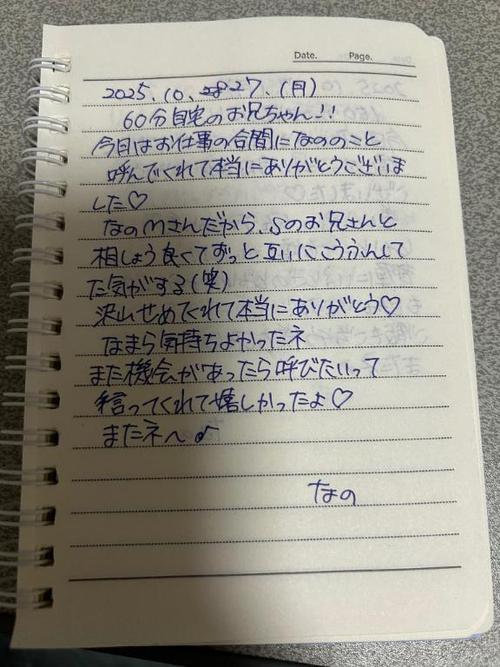 Date. Page.
2025.10.27.(月)
60分自宅のお兄ちゃん!!
今日はお仕事の合間になののこと
呼んでくれて本当にありがとうございま
した♡
なのMさんだから、Sのお兄さんと
相しょう良くてずっと互いにこうふんして
た気がする(笑)
沢山せめてくれて本当にありがとう♡
なまら気持ちよかったネ
また機会があったら呼びたいって
言ってくれて嬉しかったよ♡
またネ〜♪
なの